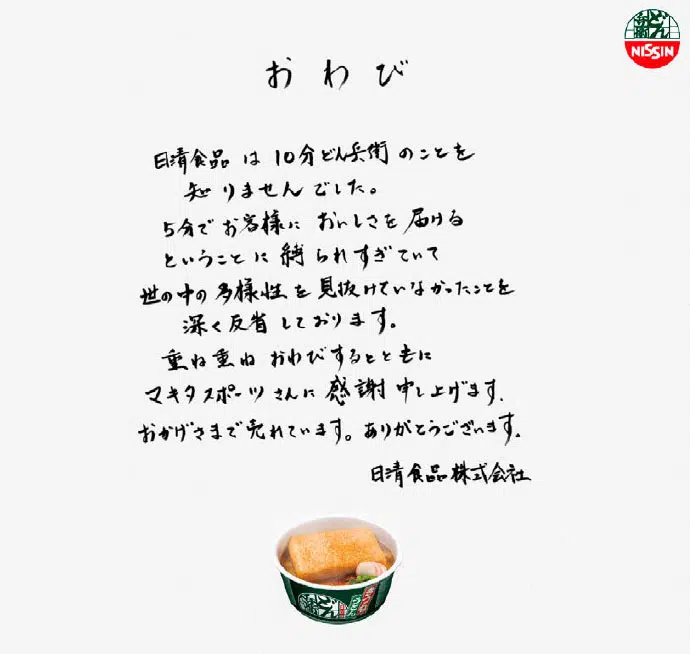 どん兵衛
NISSIN
おわび
日清食品は10分どん兵衛のことを
知りませんでした。
5分でお客様においしさを届ける
ということに縛られすぎていて
世の中の多様性を見抜けていなかったことを
深く反省しております。
重ね重ねおわびするとともに
マキタスポーツさんに感謝申し上げます.
おかげさまで売れています。ありがとうございます.
日清食品株式会社
どん兵衛
きつねうどん